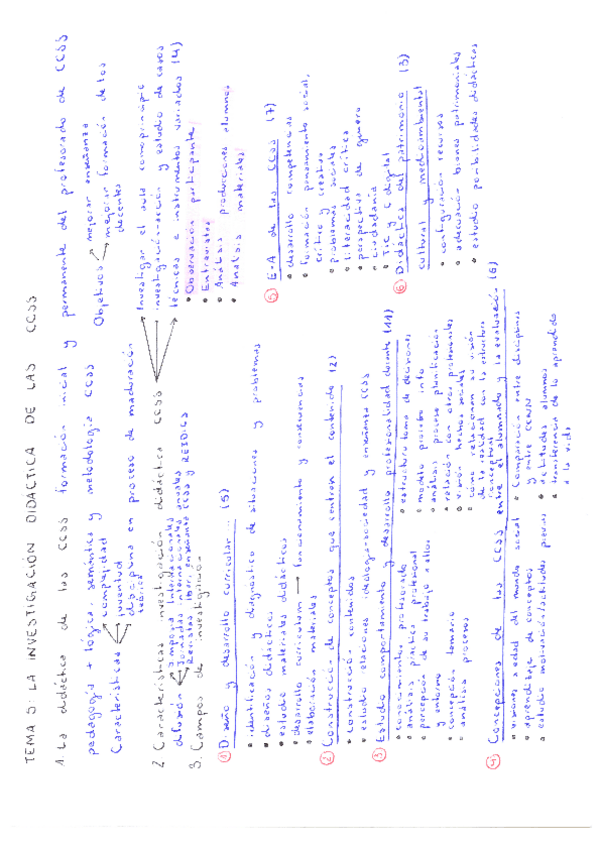 TEMA 5: LA INVESTIGACIÓN DIDÁCTICA DE LAS CCSS
1. La didáctica de las CCSS formación inicial y permanente del profesorado de CCSS
pedagogía + lógica, semántica y metodología CCSS
Objetivos
mejorar enseñanza
mejorar formación de los docentes
Características
complejidad
juventud
disciplina en proceso de maduración teórica
2 Características investigación didáctica CCSS
Investigar el aula como principio
investigación-acción y estudio de casos
técnicas e instrumentos variados (4)
• Observación participante
• Entrevistas
• Análisis producciones alumnos
• Análisis materiales
difusión
Simposios Internacionales
Jornadas internacionales anuales
Revistas Iber, enseñanza CCSS y REIDICS
3. Campos de investigación
① Diseño y desarrollo curricular... (5)
• identificación y diagnóstico de situaciones y problemas
• diseños didácticos
• estudio materiales didácticos
• desarrollo curriculum → funcionamiento y consecuencias
• elaboración materiales
② Construcción de conceptos que centran el contenido (2)
• construcción contenidos
• estudio relaciones ideología-sociedad y enseñanza CCSS
③ Estudio comportamiento y desarrollo profesionalidad docente (11)
• conocimientos profesorado
• análisis práctica profesional
• percepción de su trabajo, ellos y entorno
• concepción temario
• análisis procesos
• estructura toma de decisiones
• modelo proceso info
• análisis proceso planificación
• relación con otros profesionales
• visión hechos sociales
• cómo relacionan su visión de la realidad con la estructura conceptual
④ Concepciones de las CCSS entre el alumnado y la evaluación (6)
• visiones a edad del mundo social
• aprendizaje de conceptos
• estudio motivación/actitudes previas
• comparación entre disciplinas y entre CCNN
• actitudes alumnos
• transferencia de lo aprendido a la vida
⑤ E-A de las CCSS (7)
• desarrollo competencias
• formación pensamiento social, crítico y creativo
• problemas sociales
• literacidad crítica
• perspectiva de género
• ciudadanía
• TIC y C digital
⑥ Didáctica del patrimonio (3)
cultural y medioambiental
• configuración recursos
• adecuación bienes patrimoniales
• estudio posibilidades didácticas